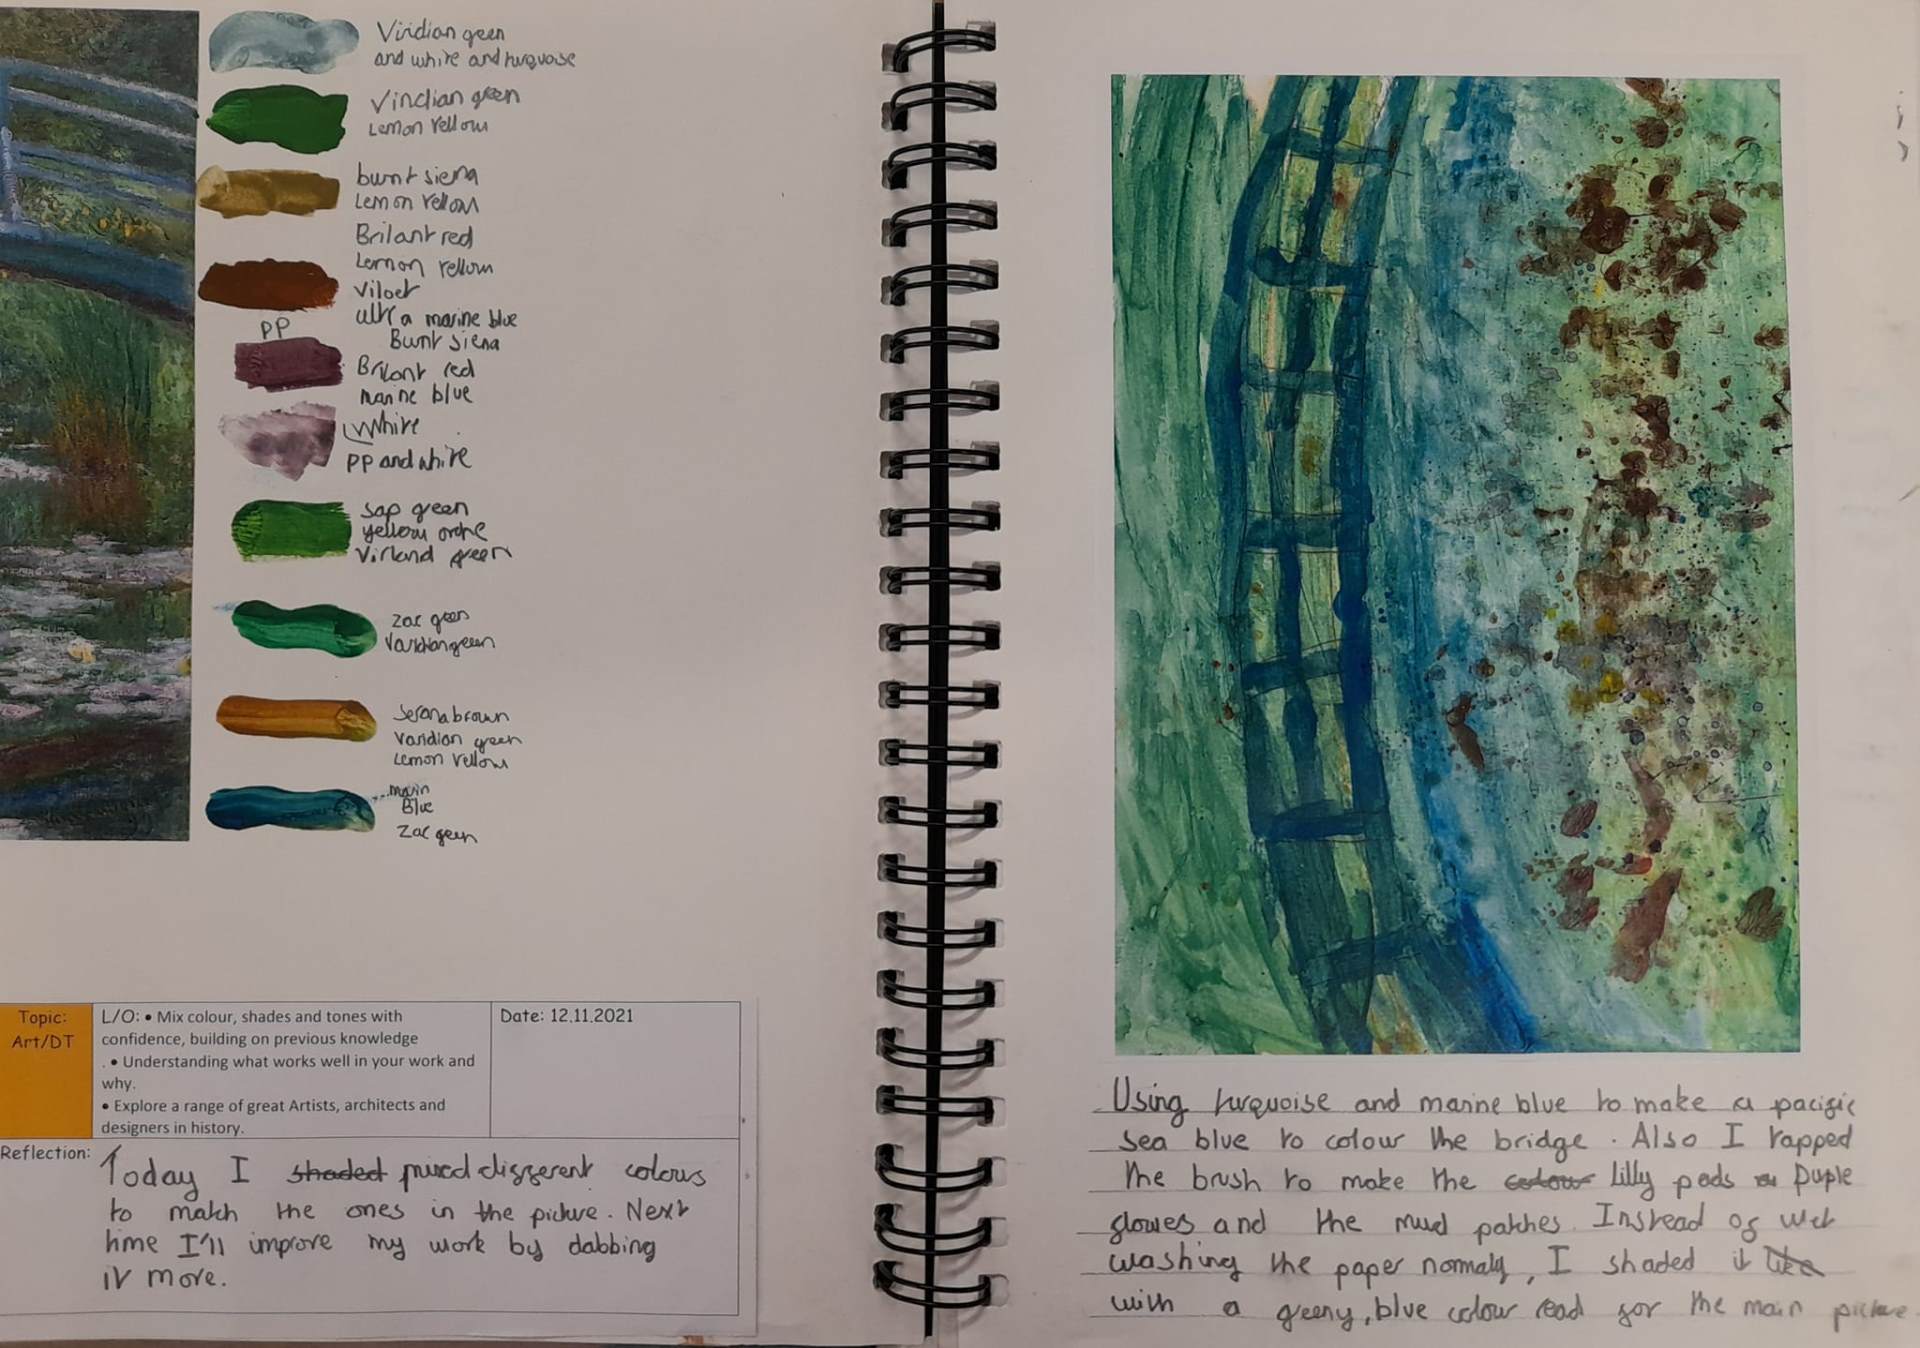 Viridian geen
and white and turquoise
Viridian green
Lemon Yellow
burnt siena
Lemon Yellow
Brilant red
Lemon Yellow
Viloet
ultra marine blue
Burnt siena
PP
Brilant red
marine blue
White
PP and white
sap green
yellow orche
Virland green
zac geen
Varidiangreen
Seronabrown
Varidian green
Lemon Yellow
marin
Blue
Zac geen
Topic:
Art/DT
L/O: • Mix colour, shades and tones with
confidence, building on previous knowledge
. • Understanding what works well in your work and
why.
• Explore a range of great Artists, architects and
designers in history.
Date: 12.11.2021
Reflection:
Today I shaded mixed different colours
to match the ones in the picture. Next
time I'll improve my work by dabbing
it more.
Using turquoise and marine blue to make a pacific
sea blue to colour the bridge. Also I tapped
the brush to make the colour lilly pads puple
flowes and the mud patches. Instead of wet
washing the paper normaly, I shaded it like
with a greeny, blue colour read for the main picture